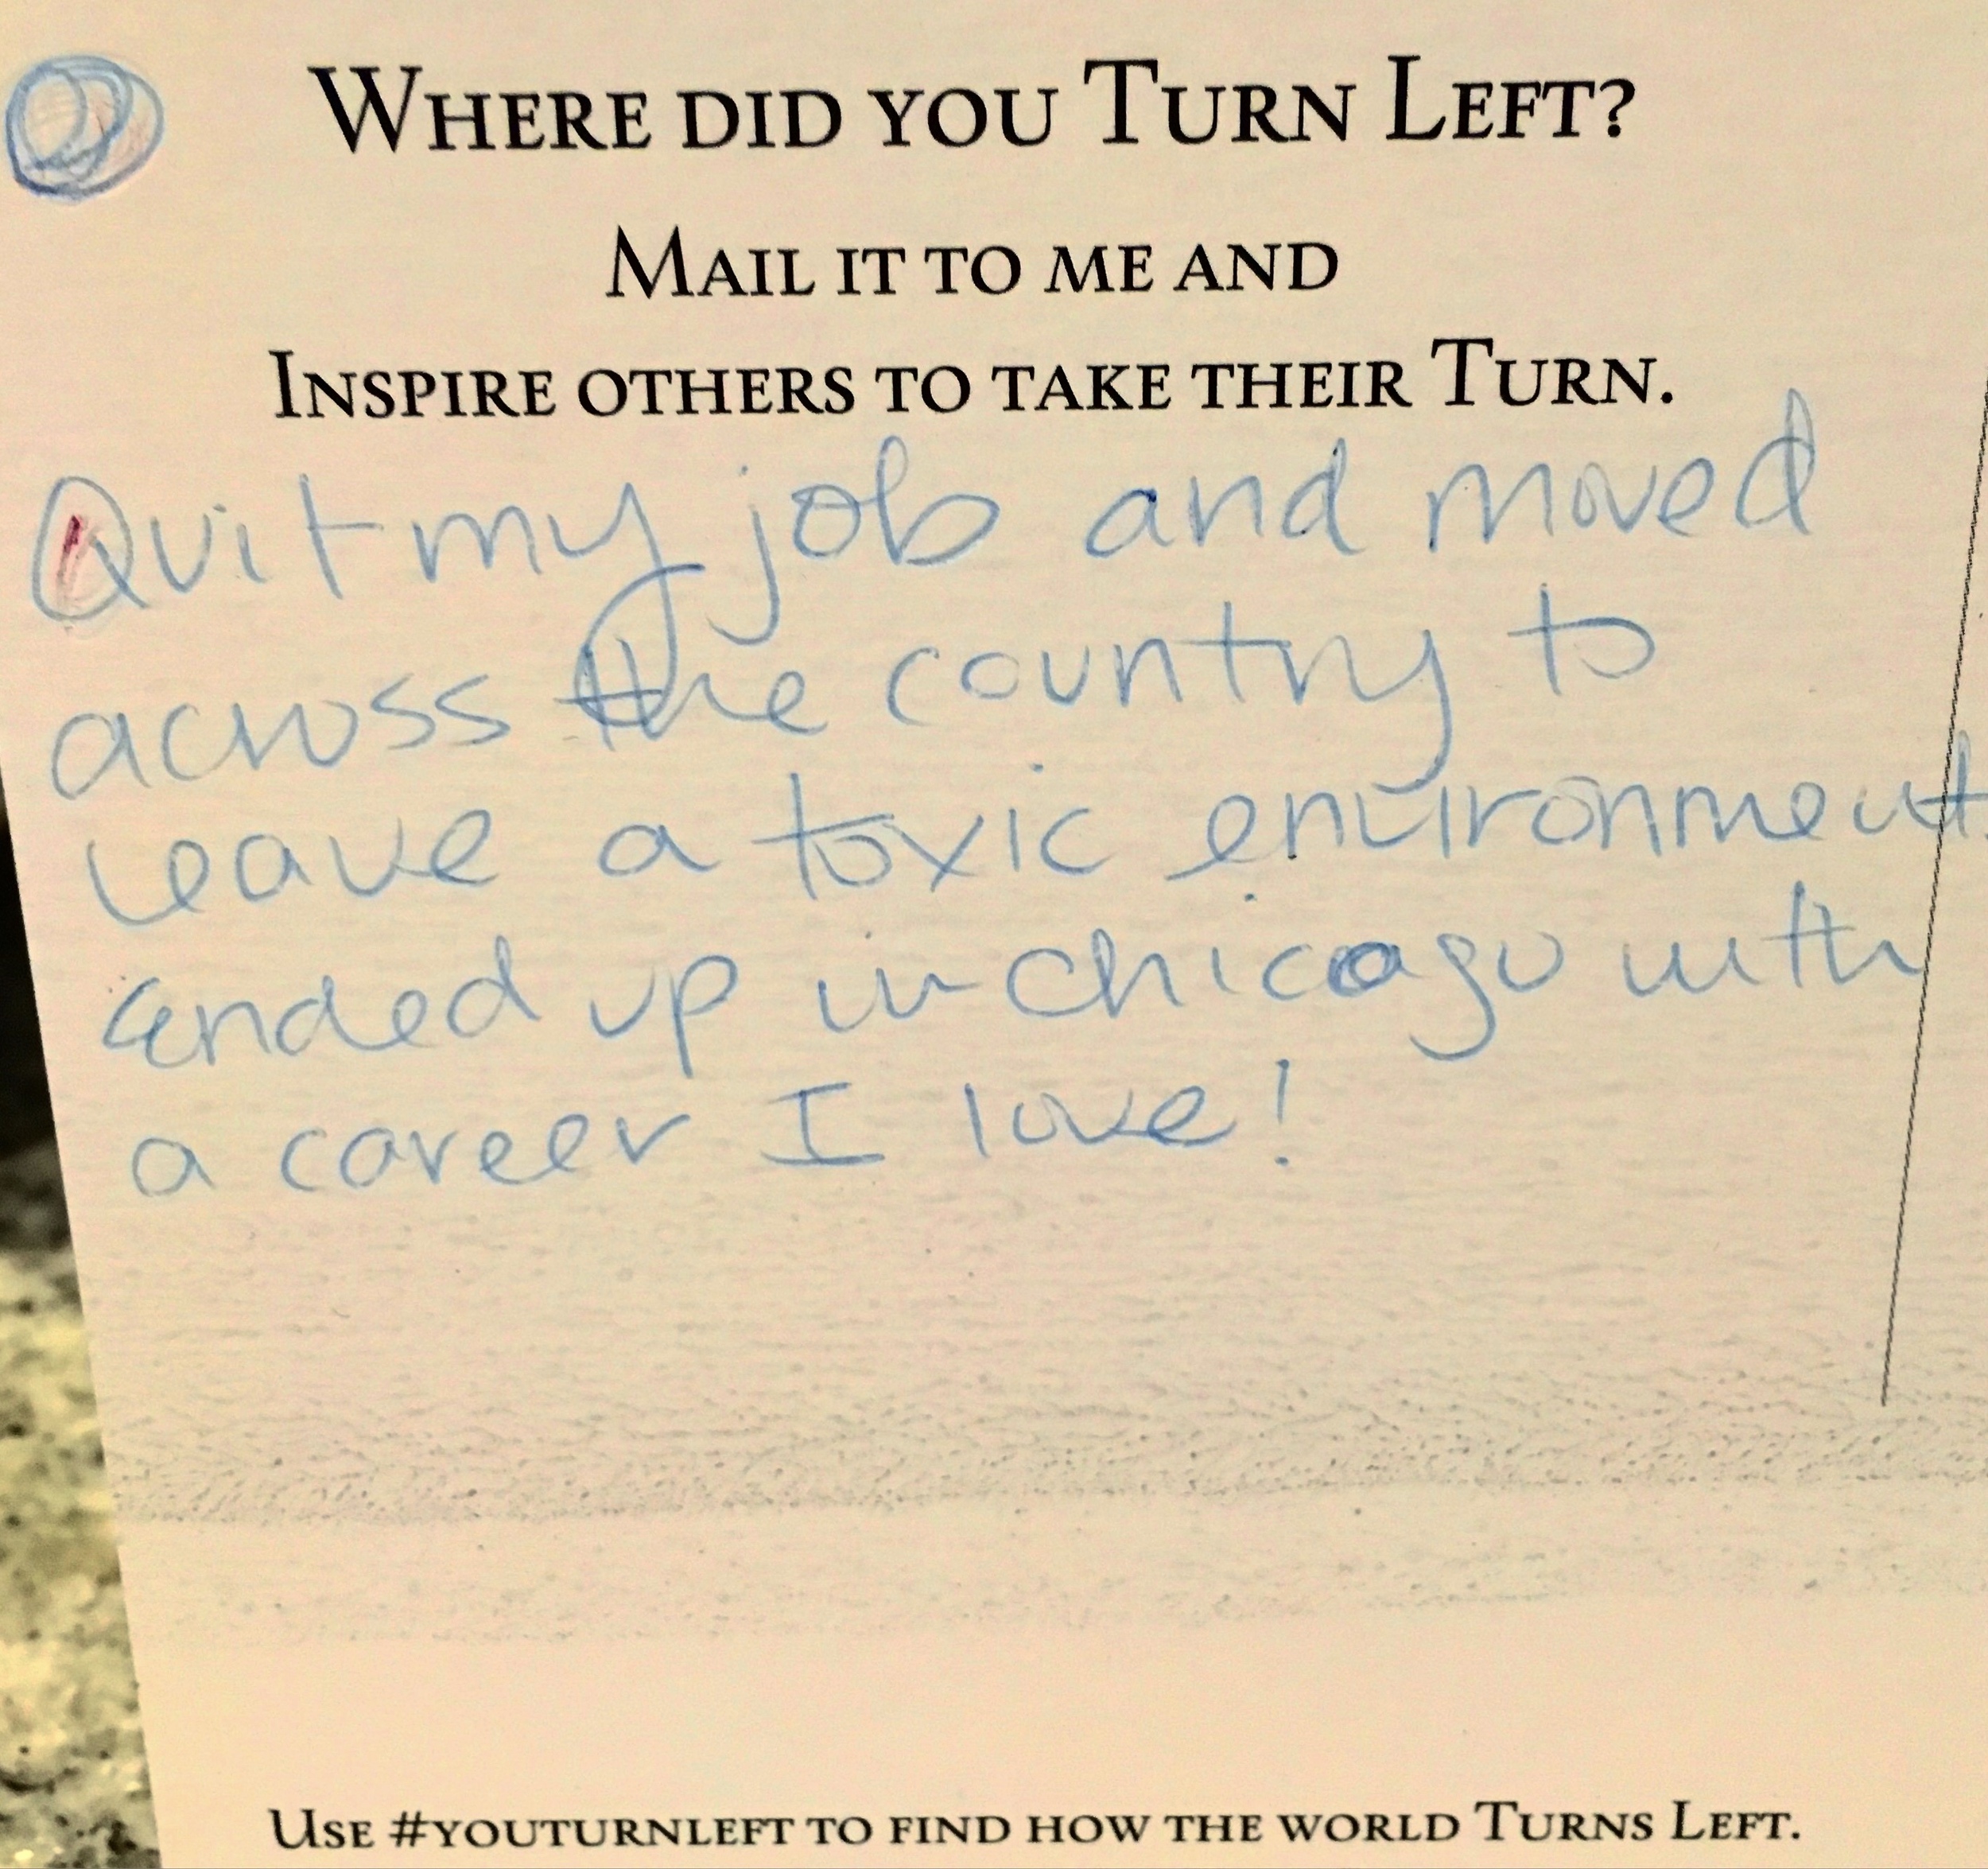 WHERE DID YOU TURN LEFT?
MAIL IT TO ME AND
INSPIRE OTHERS TO TAKE THEIR TURN.
Quit my job and moved
across the country to
leave a toxic environment.
Ended up in Chicago with
a career I love!
USE #YOUTURNLEFT TO FIND HOW THE WORLD TURNS LEFT.